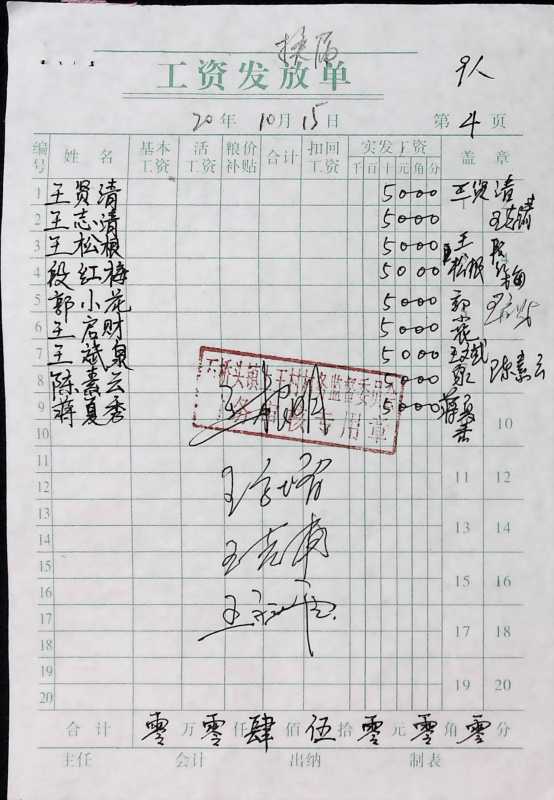 换届
工资发放单
9人
20 年 10月 15日 第 4 页
编号 姓名 基本工资 活工资 粮价补贴 合计 扣回工资 实发工资 盖章
千 百 十 元 角 分
1 王贤清 5000 王贤清
2 王志清 5000 王志清
3 王松根 5000 王松根
4 段红梅 5000 段红梅
5 郭小花 5000 郭小花
6 王启财 5000 王启财
7 王斌泉 5000
8 陈素云 5000 陈素云
9 蒋夏秀 5000 蒋夏秀
石桥头镇 王村村务监督委员
务 专用章
10 10
11 11 12
12
13 13 14
14
15 15 16
16
17 17 18
18
19 19 20
20
合计 零万零仟肆佰伍拾零元零角零分
主任 会计 出纳 制表